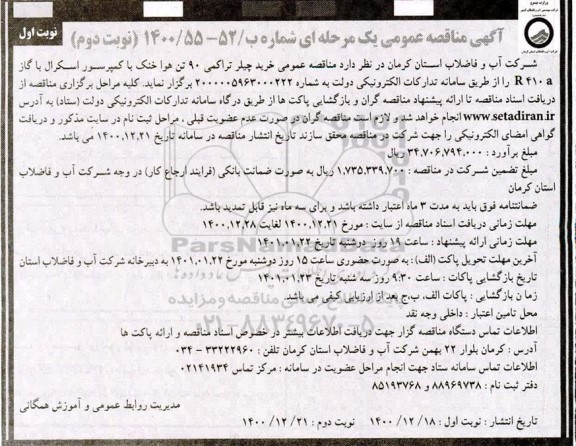 نوبت اول
آگهی مناقصه عمومی یک مرحله ای شماره ب/۵۲-۱۴۰۰/۵۵ (نوبت دوم)
شرکت آب و فاضلاب استان کرمان در نظر دارد مناقصه عمومی خرید چیلر تراکمی ۹۰ تن هوا خنک با کمپرسور اسکرال با گاز
R ۴۱۰ a را از طریق سامانه تدارکات الکترونیکی دولت به شماره ۲۰۰۰۰۰۵۹۶۳۰۰۰۲۲۲ برگزار نماید. کلیه مراحل برگزاری مناقصه از
دریافت اسناد مناقصه تا ارائه پیشنهاد مناقصه گران و بازگشایی پاکت ها از طریق درگاه سامانه تدارکات الکترونیکی دولت (ستاد) به آدرس
www.setadiran.ir انجام خواهد شد و لازم است مناقصه گران در صورت عدم عضویت قبلی ، مراحل ثبت نام در سایت مذکور و دریافت
گواهی امضای الکترونیکی را جهت شرکت در مناقصه محقق سازند تاریخ انتشار مناقصه در سامانه تاریخ ۱۴۰۰,۱۲,۲۱ می باشد.
مبلغ برآورد : ۳۴,۷۰۶,۷۹۴,۰۰۰ ریال
مبلغ تضمین شرکت در مناقصه : ۱,۷۳۵,۳۳۹,۷۰۰ ریال به صورت ضمانت بانکی (فرایند ارجاع کار) در وجه شرکت آب و فاضلاب
استان کرمان
ضمانتنامه فوق باید به مدت ۳ ماه اعتبار داشته باشد و برای سه ماه نیز قابل تمدید باشد.
مهلت زمانی دریافت اسناد مناقصه از سایت : مورخ ۱۴۰۰,۱۲,۲۱ لغایت ۱۴۰۰,۱۲,۲۸
مهلت زمانی ارائه پیشنهاد : ساعت ۱۹ روز دوشنبه تاریخ ۱۴۰۱,۰۱,۲۲
آخرین مهلت تحویل پاکت (الف) : به صورت حضوری ساعت ۱۵ روز دوشنبه مورخ ۱۴۰۱,۰۱,۲۲ به دبیرخانه شرکت آب و فاضلاب استان
تاریخ بازگشایی پاکات : ساعت ۹:۳۰ روز سه شنبه تاریخ ۱۴۰۱,۰۱,۲۳
زمان بازگشایی : پاکات الف، ب،ج بعد از ارزیابی کیفی می باشد.
محل تامین اعتبار : داخلی وجه نقد
اطلاعات تماس دستگاه مناقصه گزار جهت دریافت اطلاعات بیشتر در خصوص اسناد مناقصه و ارائه پاکت ها
آدرس : کرمان بلوار ۲۲ بهمن شرکت آب و فاضلاب استان کرمان تلفن : ۳۳۲۲۲۹۶۰ - ۰۳۴
اطلاعات تماس سامانه ستاد جهت انجام مراحل عضویت در سامانه : مرکز تماس ۰۲۱۴۱۹۳۴
دفتر ثبت نام : ۸۸۹۶۹۷۳۸ و ۸۵۱۹۳۷۶۸
مدیریت روابط عمومی و آموزش همگانی
تاریخ انتشار : نوبت اول : ۱۸ /۱۲ /۱۴۰۰ نوبت دوم : ۲۱ /۱۲ /۱۴۰۰